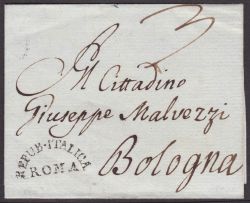 3
Al Cittadino
Giuseppe Malvezzi
REPUB-ITALICA
ROMA
Bologna